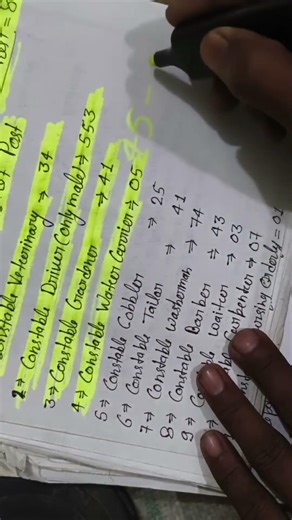 of Post
onstable Veterinary → 34
2→ Constable Driver (only male) → 553
3→ Constable Gardener → 41
4→ Constable Water Carrier → 05
5→ Constable Cobbler → 25
6→ Constable Tailor → 41
7→ Constable Washerman → 74
8→ Constable Barber → 43
9→ Co waiter → 03
Carpenter → 07
rsing orderly = 01